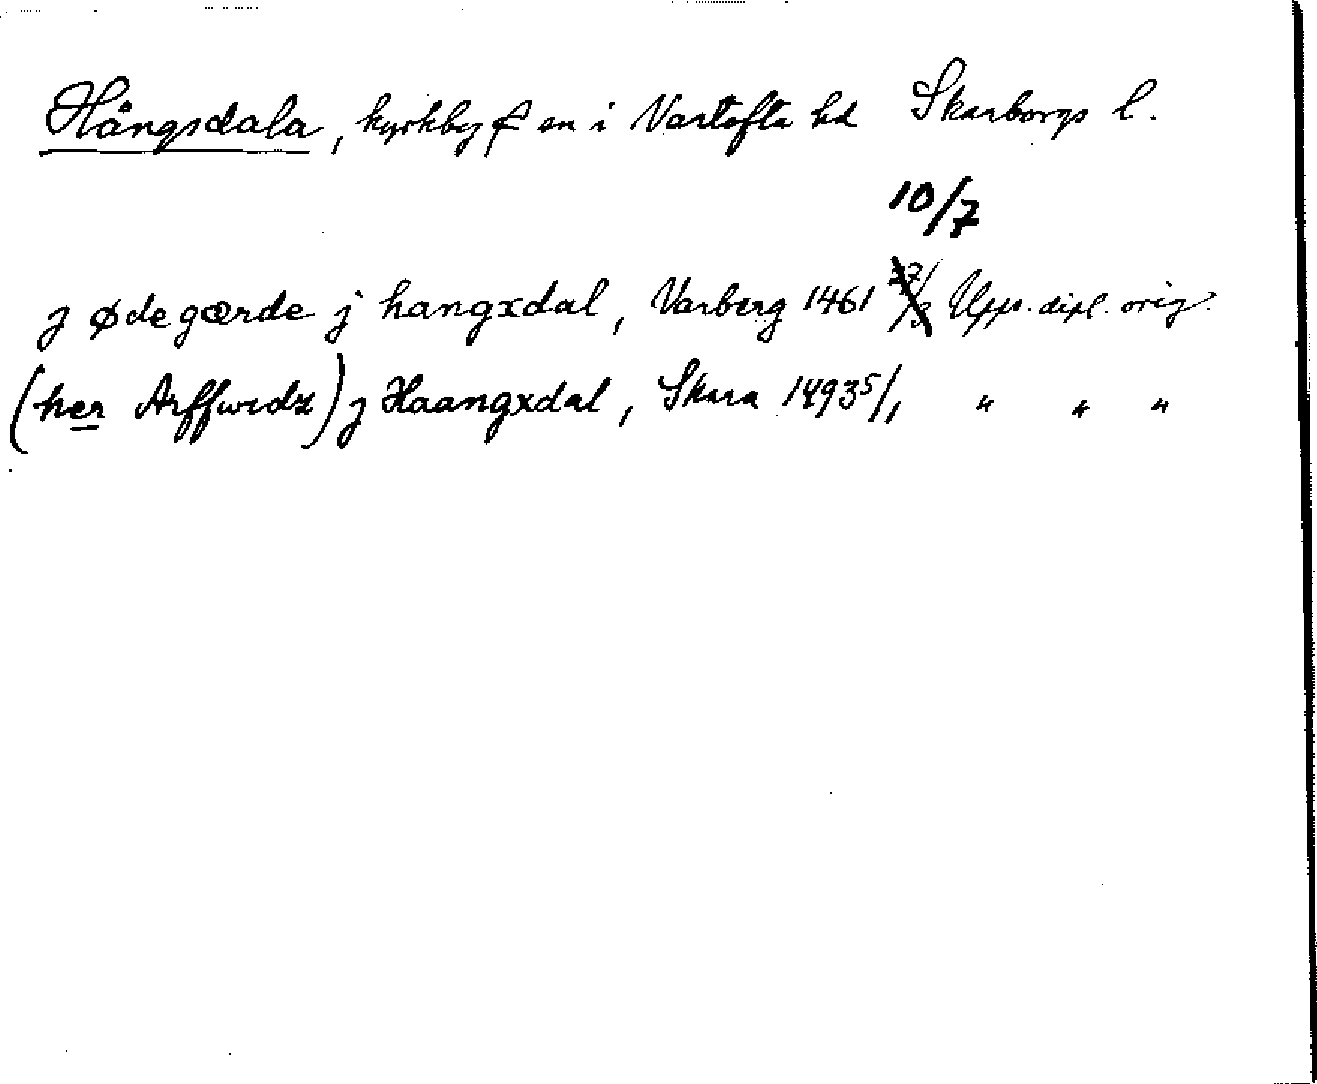 Hångsdala, kyrkby f sn i Vartofta hd Skarborgs l.
10/7
j ødegærde j hangxdal, Varberg 1461 27/3 Upps. dipl. orig.
(her Arffwidz) j Haangxdal, Skara 1493 5/1 " " "